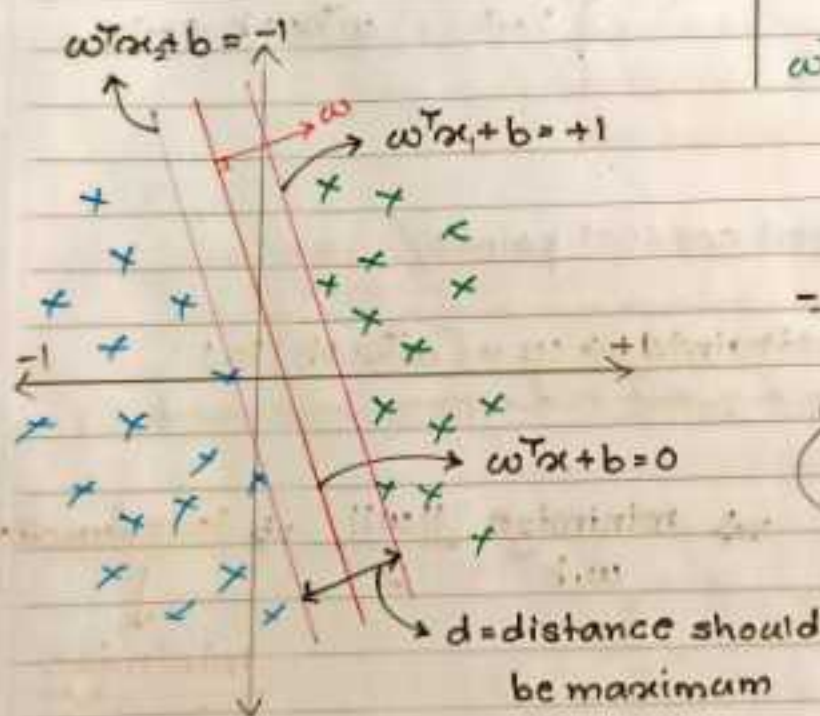 ωᵀx₂+b = -1
ω
ωᵀ
ωᵀx₁+b = +1
-1
+1
ωᵀx+b=0
d=distance should
be maximum